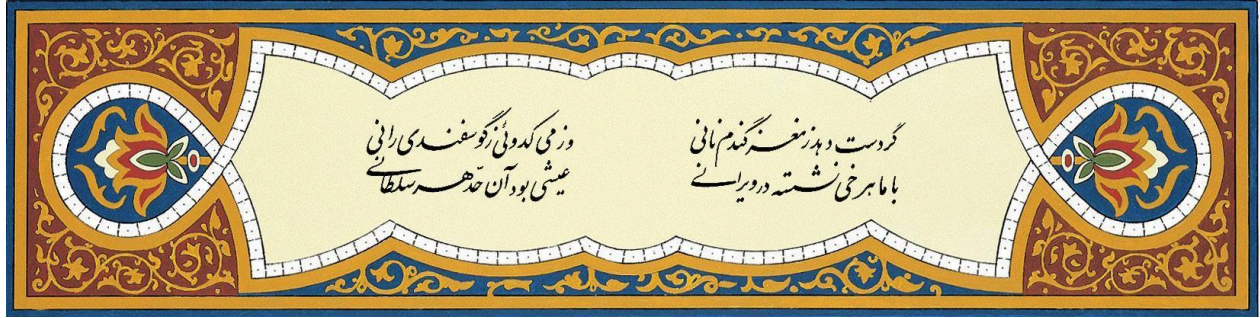 گر دست دهد ز مغز گندم نانی
وز می کدوئی ز گوسفندی رانی
با ماهرخی نشسته در ویرانی
عیشی بود آن حدّ هر سلطانی